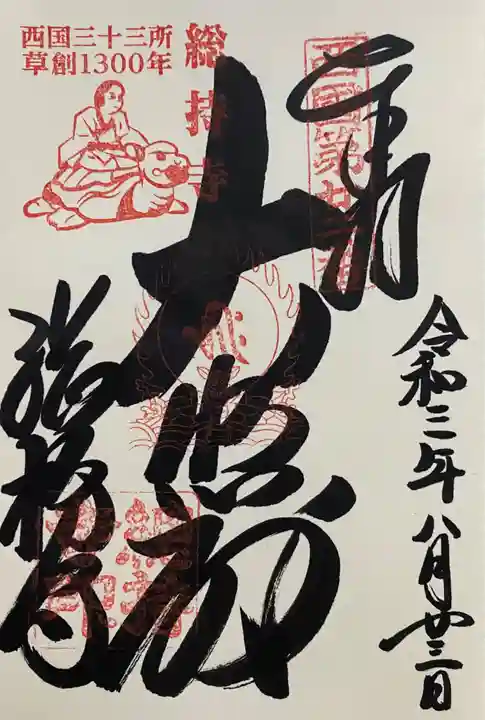 西国三十三所
草創1300年
総持寺
西国第廿二番
奉拝
大悲殿
総持寺
令和三年八月廿三日